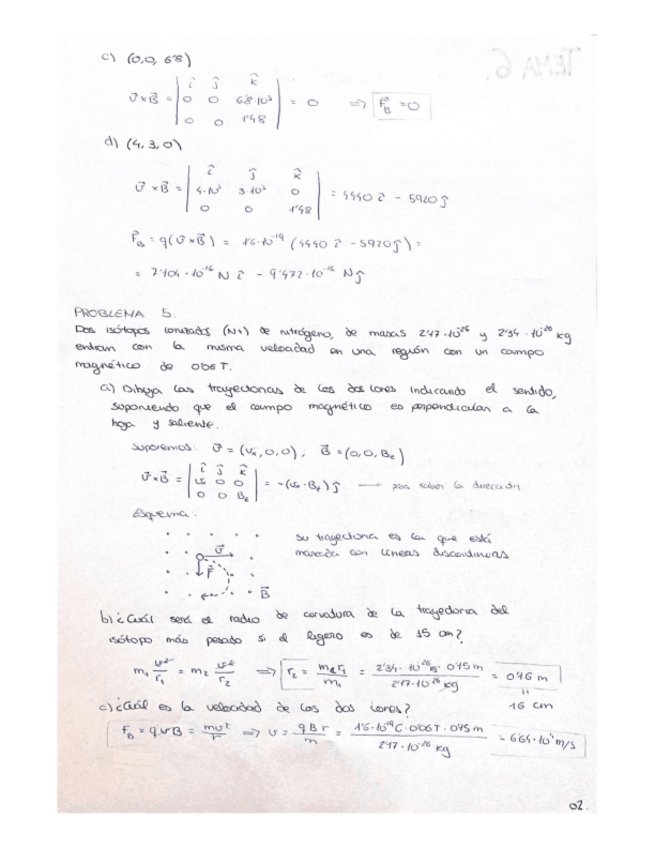 TEMA 6.
c) (0,0, 6'8)
v⃗×B⃗ = | î ĵ k̂ ; 0 0 6'8·10³ ; 0 0 1'48 | = 0 ⟹ F⃗_B = 0
d) (4, 3, 0)
v⃗×B⃗ = | î ĵ k̂ ; 4·10³ 3·10³ 0 ; 0 0 1'48 | = 4440 î - 5920 ĵ
F⃗_B = q(v⃗×B⃗) = 1'6·10⁻¹⁹ (4440 î - 5920 ĵ) =
= 7'104·10⁻¹⁶ N î - 9'472·10⁻¹⁶ N ĵ
PROBLEMA 5.
Dos isótopos ionizados (N+) de nitrógeno, de masas y 2'34·10⁻²⁶ kg
entran con la misma velocidad en una región con un campo
magnético de T.
a) Dibuja las trayectorias de los dos iones indicando el sentido,
suponiendo que el campo magnético es perpendicular a la
hoja y saliente.
Suponemos: v⃗ = (vₓ, 0, 0) ; B⃗ = (0, 0, B_z)
v⃗×B⃗ = | î ĵ k̂ ; vₓ 0 0 ; 0 0 B_z | = -(vₓ·B_z) ĵ → para saber la dirección
Esquema:
su trayectoria es la que está
marcada con líneas discontinuas
v⃗
F⃗
B⃗
b) ¿Cuál será el radio de curvatura de la trayectoria del
isótopo más pesado si el ligero es de 15 cm?
m₁ v²/r₁ = m₂ v²/r₂ ⟹ r₂ = m₂r₁/m₁ = 2'34·10⁻²⁶ kg · 0'15 m / 2'17·10⁻²⁶ kg = 0'16 m
=
16 cm
c) ¿Cuál es la velocidad de los dos iones?
F_B = qvB = mv²/r ⟹ v = qBr/m = 1'6·10⁻¹⁹ C · 0'06 T · 0'15 m / 2'17·10⁻²⁶ kg = 6'64·10⁴ m/s
02.